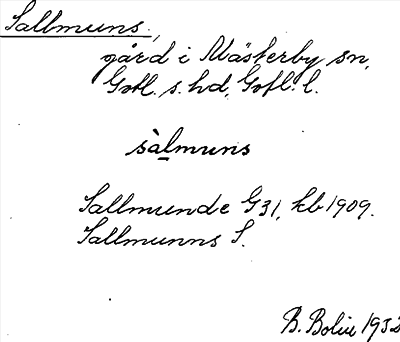 Sallmuns,
gård i Mästerby sn,
Gotl. s. hd, Gotl. l.
sàlmuns
Sallmunde G31, kb 1909.
Sallmunns S.
B. Bolin 1932